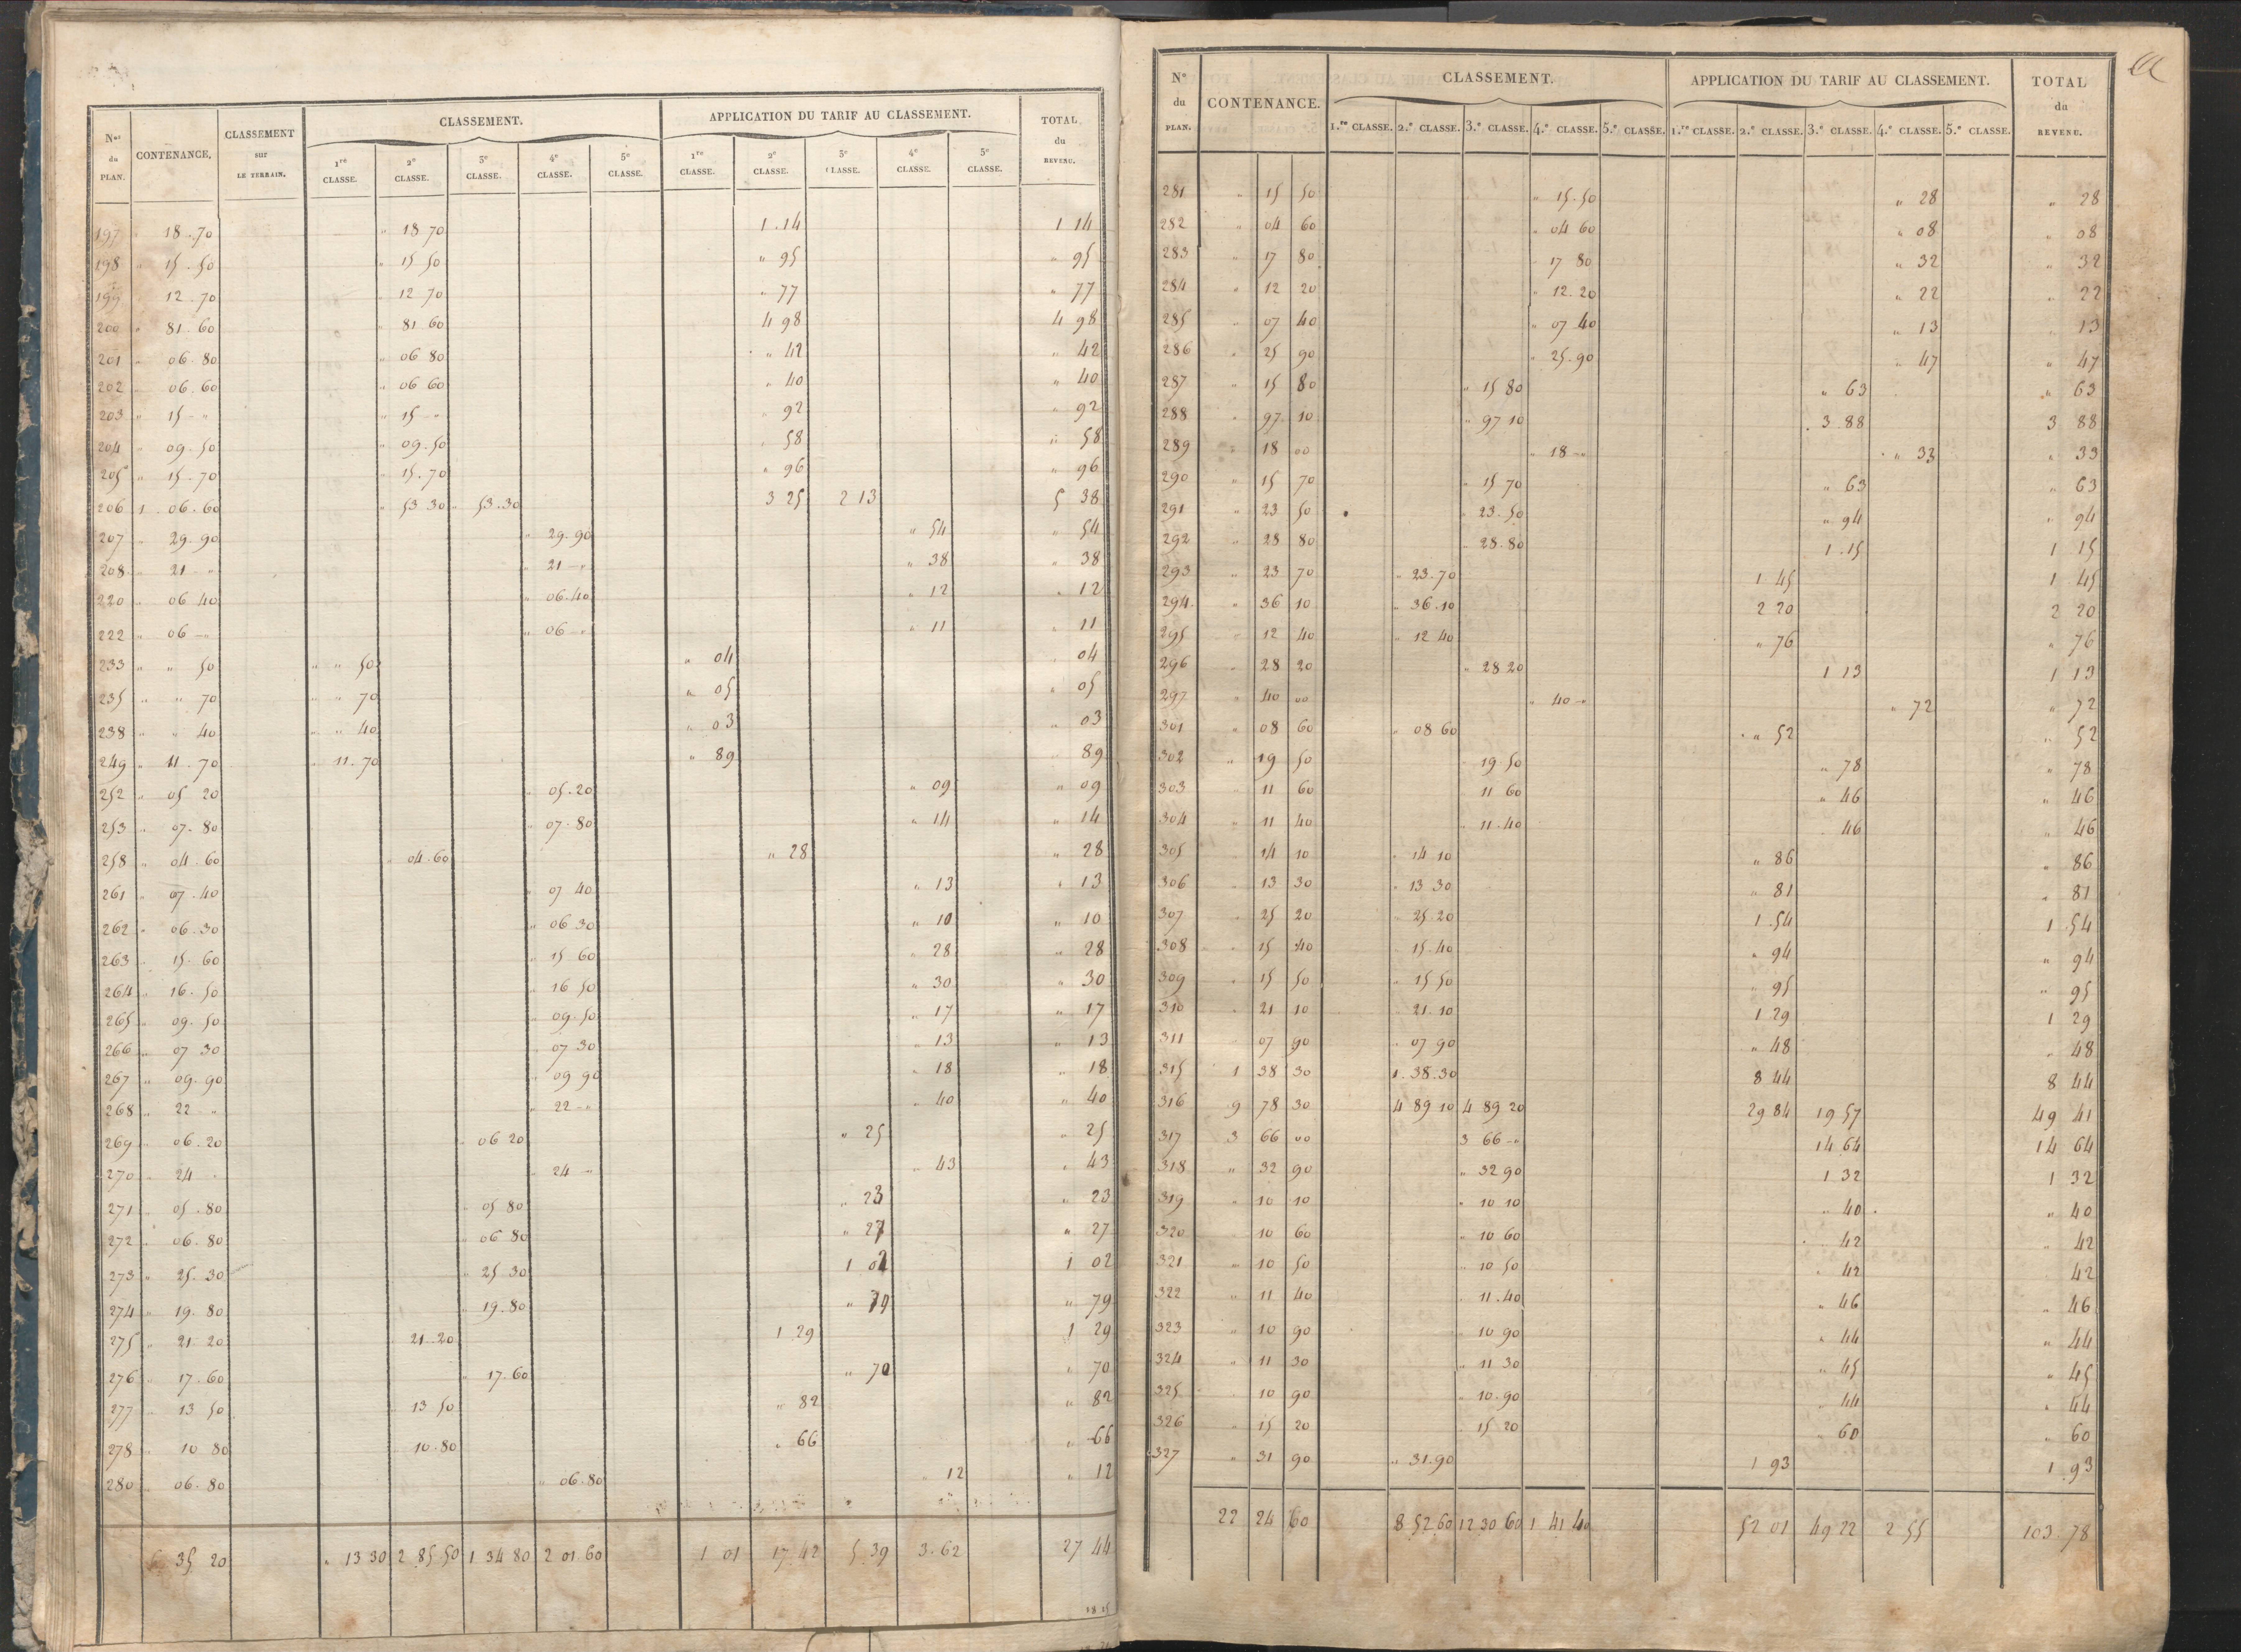 Nos du PLAN. CONTENANCE. CLASSEMENT sur LE TERRAIN. CLASSEMENT. APPLICATION DU TARIF AU CLASSEMENT. TOTAL du REVENU.
1re CLASSE. 2e CLASSE. 3e CLASSE. 4e CLASSE. 5e CLASSE. 1re CLASSE. 2e CLASSE. 3e CLASSE. 4e CLASSE. 5e CLASSE.
197 " 18.70 " 18 70 1.14 1 14
198 " 15.50 " 15 50 " 95 " 95
199 12.70 " 12 70 " 77 " 77
200 " 81.60 " 81 60 4 98 4 98
201 " 06.80 " 06 80 " 42 " 42
202 " 06.60 " 06 60 " 40 " 40
203 " 15 - " " 15 - " " 92 " 92
204 " 09.50 " 09.50 " 58 " 58
205 " 15.70 " 15.70 " 96 " 96
206 1 06.60 " 53 30 " 53.30 3 25 2 13 5 38
207 " 29.90 " 29.90 " 54 " 54
208 " 21 - " " 21 - " " 38 " 38
220 " 06 40 " 06.40 " 12 " 12
222 " 06 - " " 06 - " " 11 " 11
233 " " 50 " " 50 " 04 " 04
235 " " 70 " " 70 " 05 " 05
238 " " 40 " " 40 " 03 " 03
249 " 11.70 " 11.70 " 89 " 89
252 " 05 20 " 05.20 " 09 " 09
253 " 07.80 " 07.80 " 14 " 14
258 " 04.60 " 04.60 " 28 " 28
261 " 07.40 " 07 40 " 13 " 13
262 " 06.30 " 06 30 " 10 " 10
263 " 15.60 " 15 60 " 28 " 28
264 " 16.50 " 16 50 " 30 " 30
265 " 09.50 " 09.50 " 17 " 17
266 " 07 30 " 07 30 " 13 " 13
267 " 09.90 " 09 90 " 18 " 18
268 " 22 - " " 22 - " " 40 " 40
269 " 06.20 " 06 20 " 25 " 25
270 " 24 - " 24 - " " 43 " 43
271 " 05.80 " 05 80 " 23 " 23
272 " 06.80 " 06 80 " 27 " 27
273 " 25.30 " 25 30 1 02 1 02
274 " 19.80 " 19.80 " 79 " 79
275 " 21 20 " 21.20 1 29 1 29
276 " 17.60 " 17.60 " 70 " 70
277 " 13 50 " 13 50 " 82 " 82
278 " 10 80 " 10.80 " 66 " 66
280 " 06.80 " 06.80 " 12 " 12
6 35 20 " 13 30 2 85 50 1 34 80 2 01 60 1 01 17 42 5 39 3.62 27 44
No du PLAN. CONTENANCE. CLASSEMENT. APPLICATION DU TARIF AU CLASSEMENT. TOTAL du REVENU.
1.re CLASSE. 2.e CLASSE. 3.e CLASSE. 4.e CLASSE. 5.e CLASSE. 1.re CLASSE. 2.e CLASSE. 3.e CLASSE. 4.e CLASSE. 5.e CLASSE.
281 " 15 50 " 15.50 " 28 " 28
282 " 04 60 " 04 60 " 08 " 08
283 " 17 80 " 17 80 " 32 " 32
284 " 12 20 " 12.20 " 22 " 22
285 " 07 40 " 07 40 " 13 " 13
286 " 25 90 " 25.90 " 47 " 47
287 " 15 80 " 15 80 " 63 " 63
288 " 97 10 " 97 10 3.88 3 88
289 " 18 00 " 18 - " " 33 " 33
290 " 15 70 " 15 70 " 63 " 63
291 " 23 50 " 23.50 " 94 " 94
292 " 28 80 " 28.80 1.15 1 15
293 " 23 70 " 23.70 1.45 1 45
294 " 36 10 " 36.10 2 20 2 20
295 " 12 40 " 12 40 " 76 " 76
296 " 28 20 " 28 20 1 13 1 13
297 " 40 00 " 40 - " " 72 " 72
301 " 08 60 " 08 60 " 52 " 52
302 " 19 50 19.50 " 78 " 78
303 " 11 60 11 60 " 46 " 46
304 " 11 40 " 11.40 46 " 46
305 " 14 10 " 14 10 " 86 " 86
306 " 13 30 " 13 30 " 81 " 81
307 " 25 20 " 25.20 1.54 1 54
308 " 15 40 " 15.40 " 94 " 94
309 " 15 50 " 15 50 " 95 " 95
310 " 21 10 " 21.10 1 29 1 29
311 " 07 90 " 07 90 " 48 " 48
315 1 38 30 1.38.30 8 44 8 44
316 9 78 30 4 89 10 4 89 20 29 84 19 57 49 41
317 3 66 00 3 66 - " 14 64 14 64
318 " 32 90 " 32 90 1 32 1 32
319 " 10 10 " 10 10 " 40 " 40
320 " 10 60 " 10 60 " 42 " 42
321 " 10 50 " 10 50 " 42 " 42
322 " 11 40 " 11.40 " 46 " 46
323 " 10 90 " 10 90 " 44 " 44
324 " 11 30 " 11 30 " 45 " 45
325 " 10 90 " 10.90 " 44 " 44
326 " 15 20 15 20 " 60 " 60
327 " 31 90 " 31.90 1 93 1 93
22 24 60 8 52 60 12 30 60 1 41 40 52 01 49 22 2 55 103.78